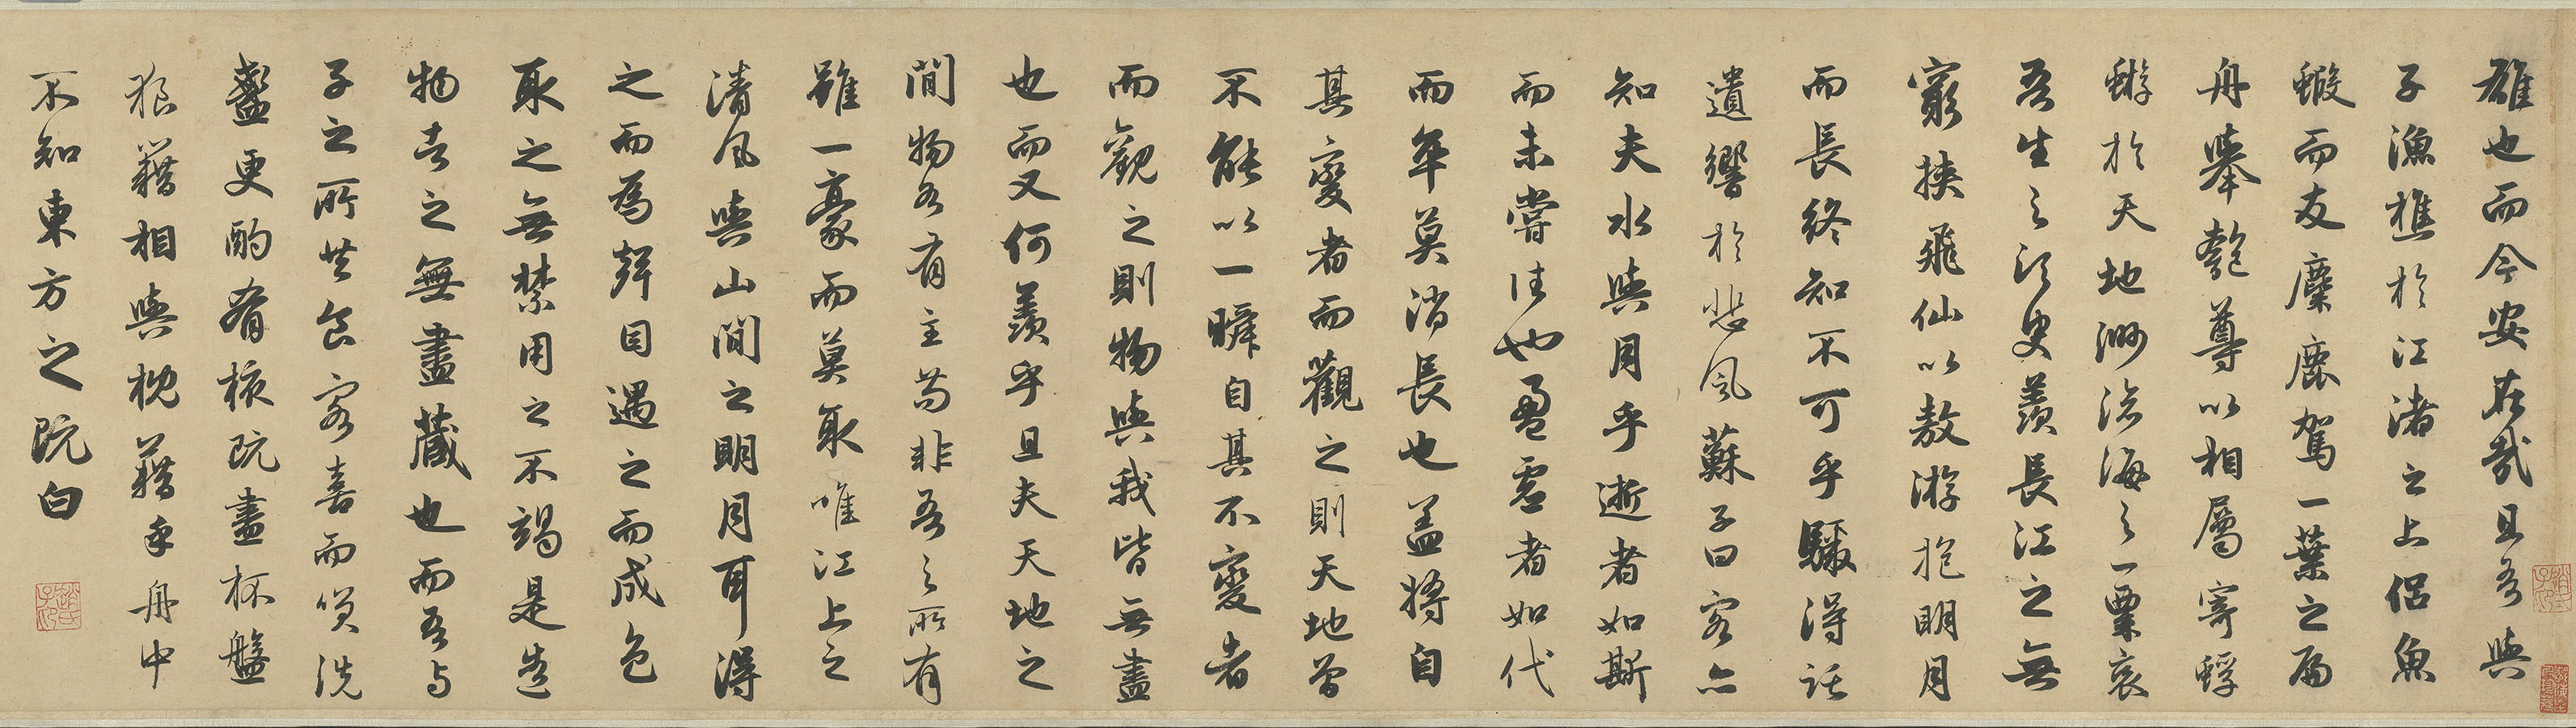 雄也而今安在哉且吾與
子漁樵於江渚之上侶魚
蝦而友麋鹿駕一葉之扁
舟舉匏尊以相屬寄蜉
蝣於天地渺滄海之一粟哀
吾生之須臾羨長江之無
窮挾飛仙以敖游抱明月
而長終知不可乎驟得託
遺響於悲風蘇子曰客亦
知夫水與月乎逝者如斯
而未嘗往也盈虛者如代
而卒莫消長也蓋將自
其變者而觀之則天地曾
不能以一瞬自其不變者
而觀之則物與我皆無盡
也而又何羨乎且夫天地之
間物各有主苟非吾之所有
雖一豪而莫取唯江上之
清風與山間之明月耳得
之而為聲目遇之而成色
取之無禁用之不竭是造
物者之無盡藏也而吾與
子之所共食客喜而笑洗
盞更酌肴核既盡杯盤
狼籍相與枕藉乎舟中
不知東方之既白